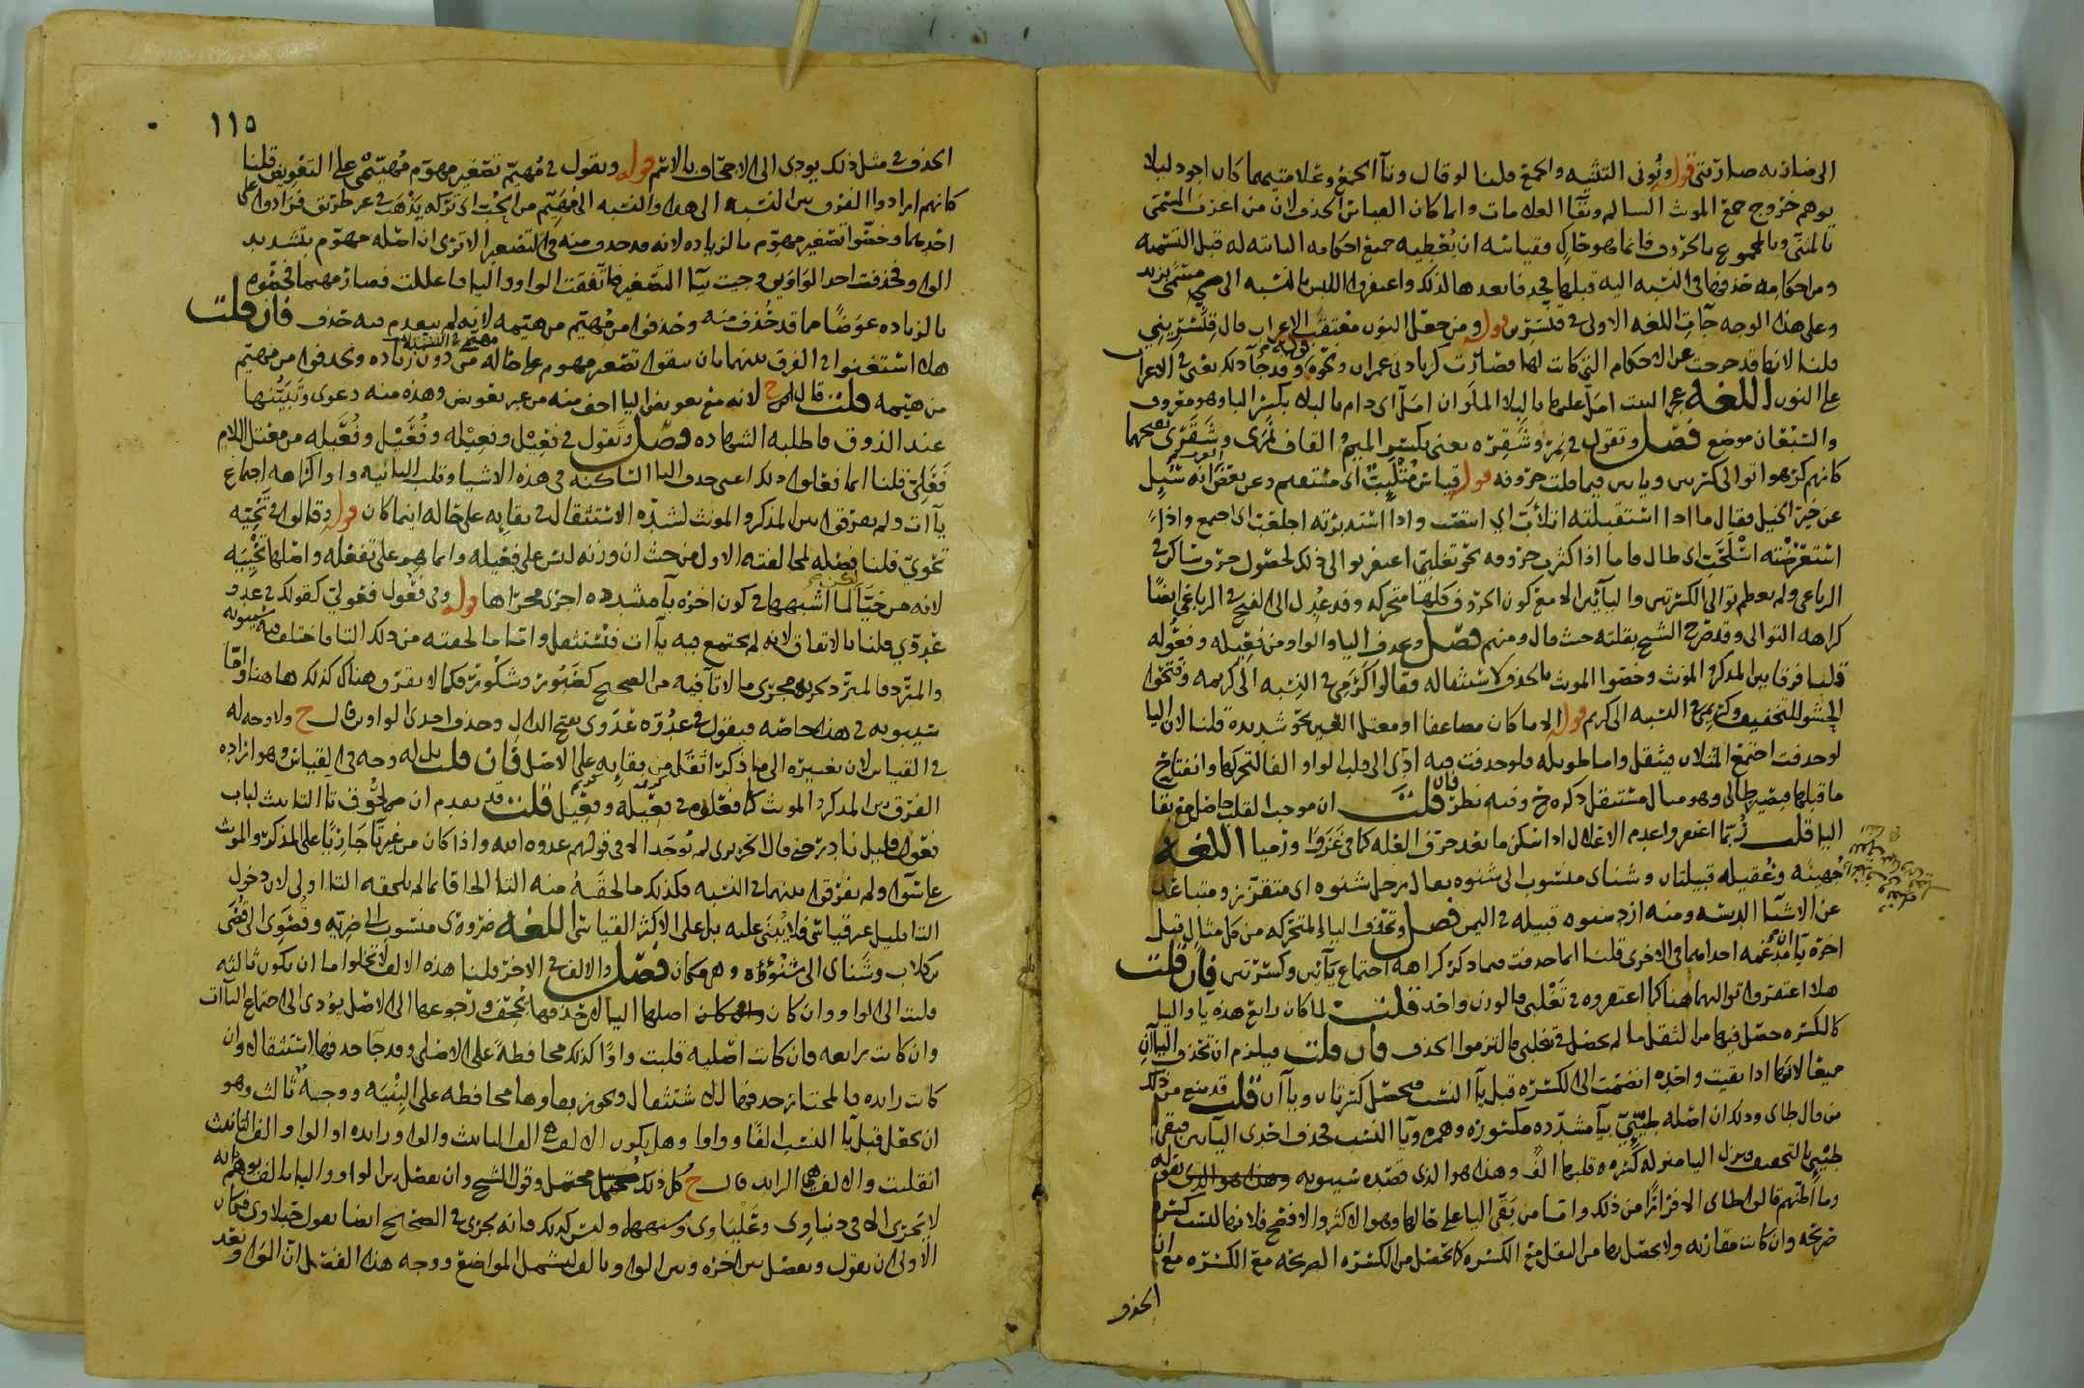 الى ضاربه صارتى قوله ونونى التثنيه والجمع قلنا لو قال وتآ الجمع وعلامتيهما كان اجود ليلا
يوهم خروج جمع الموث السالم وبقا العلامات وانما كان القياس الحذف لان من اعرب المسمى
بالمثنى وبالمجموع بالحروف فانما هو حاك وقياسه ان يعطيه جميع احكامه الثابته له قبل التسميه
ومن احكامه حذفها فى النسبه اليه قبلها فحذفا بعدها لذلك واغتفروا اللبس بالنسبه الى مسمى بزيد
وعلى هذا الوجه جآت اللغه الاولى فى قنسرين قوله ومن جعل النون معتقب الاعراب قال قنسرينى
قلنا لانها قد خرجت عن الاحكام التى كانت لها فصارت كزيادتى عمران ونحوه وقد جآ ذلك يعنى الاعراب
على النون اللغه عجز البيت امل عليها بالبلا الملوان امل اى دام بالبلا بكسر البا وهو معروف
والسبعان موضع فصل وتقول فى نمر وشقره يعنى بكسر الميم والقاف نمرى وشقرى بفتحهما
كانهم كرهوا توالى كسرتين ويايين فيما قلت حروفه قوله قياس متلئب اى مستقيم وعن بعض انه سئل
عن خير الخيل فقال ما اذا استقبلته اتلأبّ اى انتصب واذا استدبرته اجلعبّ اى اجمع واذا
استعرضته اسلحبّ اى طال فاما اذا كثرت حروفه نحو تغلبى اغتفر توالى ذلك لحصول حرف ساكن فى
الرباعى ولم يعظم توالى الكسرتين واليآئين الا مع كون الحروف كلها متحركه وقد عدل الى الفتح فى الرباعى ايضا
كراهه التوالى وقد صرح الشيخ بقلته حيث قال ومنهم فصل وتحذف اليا والواو من فعيله وفعوله
قلنا فرقا بين المذكر والموث وخصوا الموث بالحذف لاستثقاله وقالوا كرمى فى النسبه الى كريمه وفتحوا
الحشو للتخفيف وكريمى فى النسبه الى كريم قوله الا ما كان مضاعفا او معتل العين نحو شديده قلنا لان اليا
لو حذفت اجتمع المثلان فيثقل واما طويله فلو حذفت فيه ادى الى قلب الواو الفا لتحركها وانفتاح
ما قبلها فيصير طالى وهو مثال مستثقل ذكره ح وفيه نظر فان قلت ان موجب القلب حاصل مع بقا
اليا قلت ربما اغتفر واعدم الاعلال اذا سكن ما بعد حرف العله كما فى غزوا ورميا اللغه
جهينه وعقيله قبيلتان وشنأى منسوب الى شنوه يقال رجل شنوه اى متقزز ومتباعد
عن الاشيا الدنيسه ومنه ازد شنوه قبيله فى اليمن فصل وتحذف اليا المتحركه من كل مثال قبل
اخره يآن مدغمه احداهما فى الاخرى قلنا انما حذفت فيما ذكر كراهه اجتماع يآئين وكسرتين فان قلت
هلا اغتفروا توالهما هنا كما اغتفروه فى تغلبى فالوزن واحد قلت لما كان رابع هذه يا واليا
كالكسره حصل فيها من الثقل ما لم يحصل فى تغلبى فالتزموا الحذف فان قلت فيلزم ان تحذف اليآن
جميعا لانها اذا بقيت واحده انضمت الى الكسره قبل يآ النسب فيحصل كسرتان ويا آن قلت قد منع من ذلك
من قال طاى وذلك ان اصله طيئى بيآ مشدده مكسوره وهمزه ويا النسب فحذف احدى اليآين فبقى
طيئى بالتخفيف ونزل اليا منزله كسره قلبها الفا وهذا هو الذى قصده سيبويه بقوله
وما اظنهم قالوا طاى الا فرارا من ذلك واما من بقى اليا على حالها وهو الاكثر والافصح فلانها ليست كسره
صريحه وان كانت مقاربه ولا يحصل بها من الثقل مع الكسره كما تحصل من الكسره الصريحه مع الكسره مع ان
الحذف
١١٥
الحذف فى مثل ذلك يودى الى الاجحاف بالاسم قوله وتقول فى مهيم تصغير مهوم مهييمى على التعويض قلنا
كانهم ارادوا الفرق بين النسبه الى هذا والنسبه الى مهيم من الحب اى تركه يذهب فى غير طريق فزادوا على
احديهما وخصوا تصغير مهوم بالزياده لانه قد حذف منه فى التصغير الا ترى ان اصله مهوم بتشديد
الواو فحذفت احد الواوين وجيت بيآ التصغير فاتفقت الواو واليا فاعللت فصار مهيما فخصوه
بالزياده عوضا مما قد حذف منه وحذفوا من مهيم من هيمه لانه لم يتقدم فيه حذف فان قلت
هلا استغنوا فى الفرق بينهما بان يبقوا تصغير مهوم على حاله من دون زياده ويحذفوا من مهيم
من هيمه قلت قال ح لانه مع تعويض اليا اخف منه من غير تعويض وهذه منه دعوى وتبيينها
عند الذوق فاطلبه الشهاده فصل وتقول فى فعيل وفعيله وفعيل وفعيله من معتل اللام
فعلى قلنا انما فعلوا ذلك اعنى حذف اليا الساكنه فى هذه الاشيا وقلب الثانيه واوا كراهه اجتماع
يآات ولم يفرقوا بين المذكر والمونث لشده الاستثقال فى بقايه على حاله اينما كان قوله وقالوا فى تحيه
تحوىّ قلنا فصله لمخالفته الاول من حيث ان وزنه ليس على فعيله وانما هو على تفعله واصلها تحييه
لانه من حيّا لما اشبهها فى كون اخره يآ مشدده اجرى مجراها قوله وفى فعول فعولى كقولك فى عدو
عدوى قلنا بالاتفاق لانه لم يجتمع فيه يآات فتستثقل واما ما لحقته من ذلك التا فاختلف فيه سيبويه
والمبرد فالمبرد يجريه مجرى ما لا تا فيه من الصحيح كغيور وشكور فكما لا يفرق هناك كذلك هاهنا واما
سيبويه فى هذا خاصه فيقول فى عدوه عدوى بفتح الدال وحذف احدى الواوين قال ح ولا وجه له
فى القياس لان تغييره الى ما ذكر اثقل من بقايه على الاصل فان قلت بل له وجه فى القياس وهو اراده
الفرق بين المذكر والموث كما فعلوا فى فعيله وفعيل قلت قد تقدم ان لحوق تآ التانيث لباب
فعول قليل نادر حتى قال الحريرى لم توجد الا فى قولهم عدوه الله واذا كان من غير تآ جاريا على المذكر والموث
على سوا ولم يفرقوا بينهما فى النسبه فكذلك ما لحقه منه التا الحاقا بما لم يلحقه التا اولى لان دخول
التا قليل غير قياس فلا يبنى عليه بل على الاكثر القياسى اللغه ضروى منسوب الى ضريه وقصوى الى قصى
بن كلاب وشناى الى شنؤة وهى مكان فصل والالف فى الاخر قلنا هذه الالف لا تخلوا ما ان يكون ثالثه
قلبت الى الواو وان كان اصلها اليا لان حذفها مجحف ورجوعها الى الاصل يؤدى الى اجتماع اليآات
وان كانت رابعه فان كانت اصليه قلبت واوا كذلك محافظة على الاصلى وقد جآ حذفها استثقالا وان
كانت زايده فالمختار حذفها للاستثقال ويجوز بقاوها محافظه على البنيه ووجه ثالث وهو
ان يجعل قبل يا النسب الفا وواوا وهل يكون الالف هى الف التانيث والواو زايده او الواو الف التانيث
انقلبت والالف هى الزايد قال ح كل ذلك محتمل وقول الشيخ وان يفصل بين الواو واليا بالف يوهم انه
لا يجرى الا فى دنياوى وعلياوى وشبهها وليس كذلك فانه يجرى فى الصحيح ايضا يقول حبلاوى فكان
الاولى ان يقول ويفصل بين اخره وبين الواو بالف ليشمل المواضع ووجه هذا الفصل ان الواو وبعد